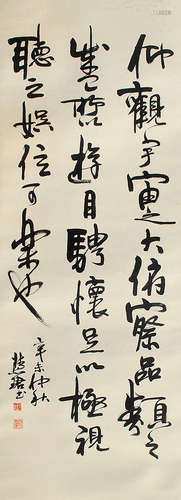 仰觀宇宙之大俯察品類之
盛所遊目騁懷足以極視
聽之娛信可樂也
辛未仲秋